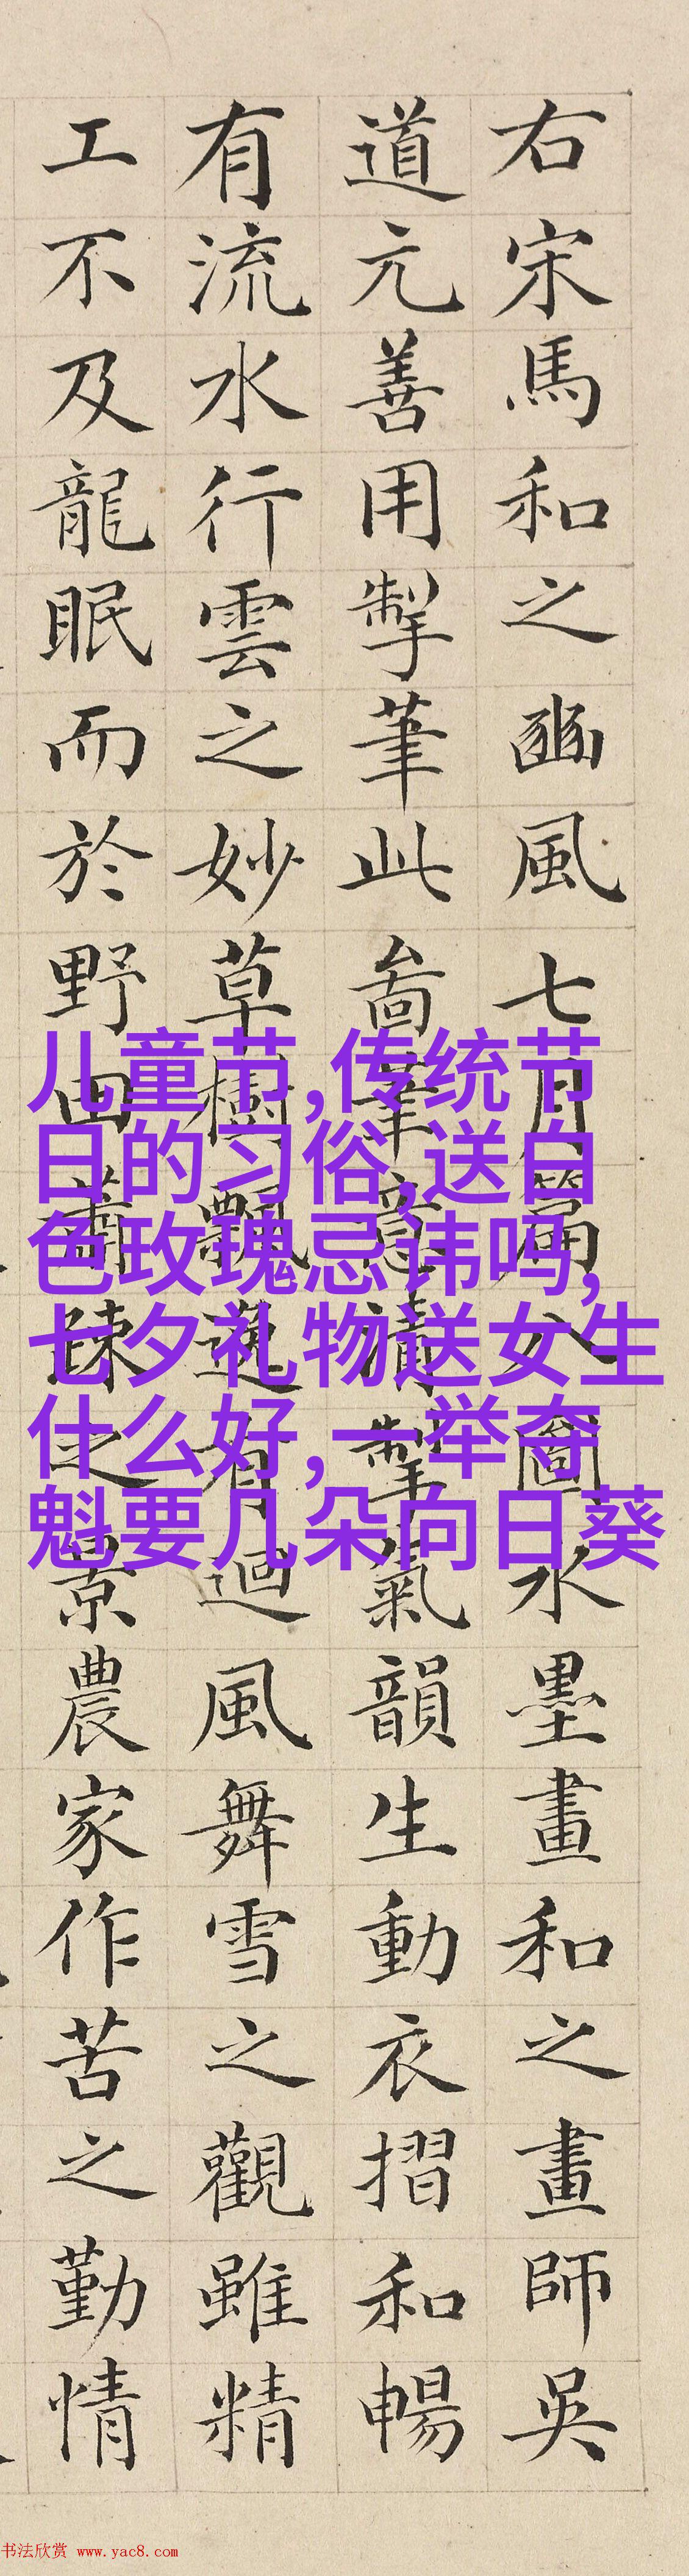 右宋馬和之豳風七月篇八圖水墨畫和之畫師吳
道元善用掣筆此啚筆意清掣氣韻生動衣摺和暢
有流水行雲之妙草樹飄逸有迴風舞雪之觀雖精
工不及龍眠而於野田蕭疎之景農家作苦之勤情
儿童节,传统节
日的习俗,送白
色玫瑰忌讳吗,
七夕礼物送女生
什么好,一举夺
魁要几朵向日葵
书法欣赏 www.yac8.com